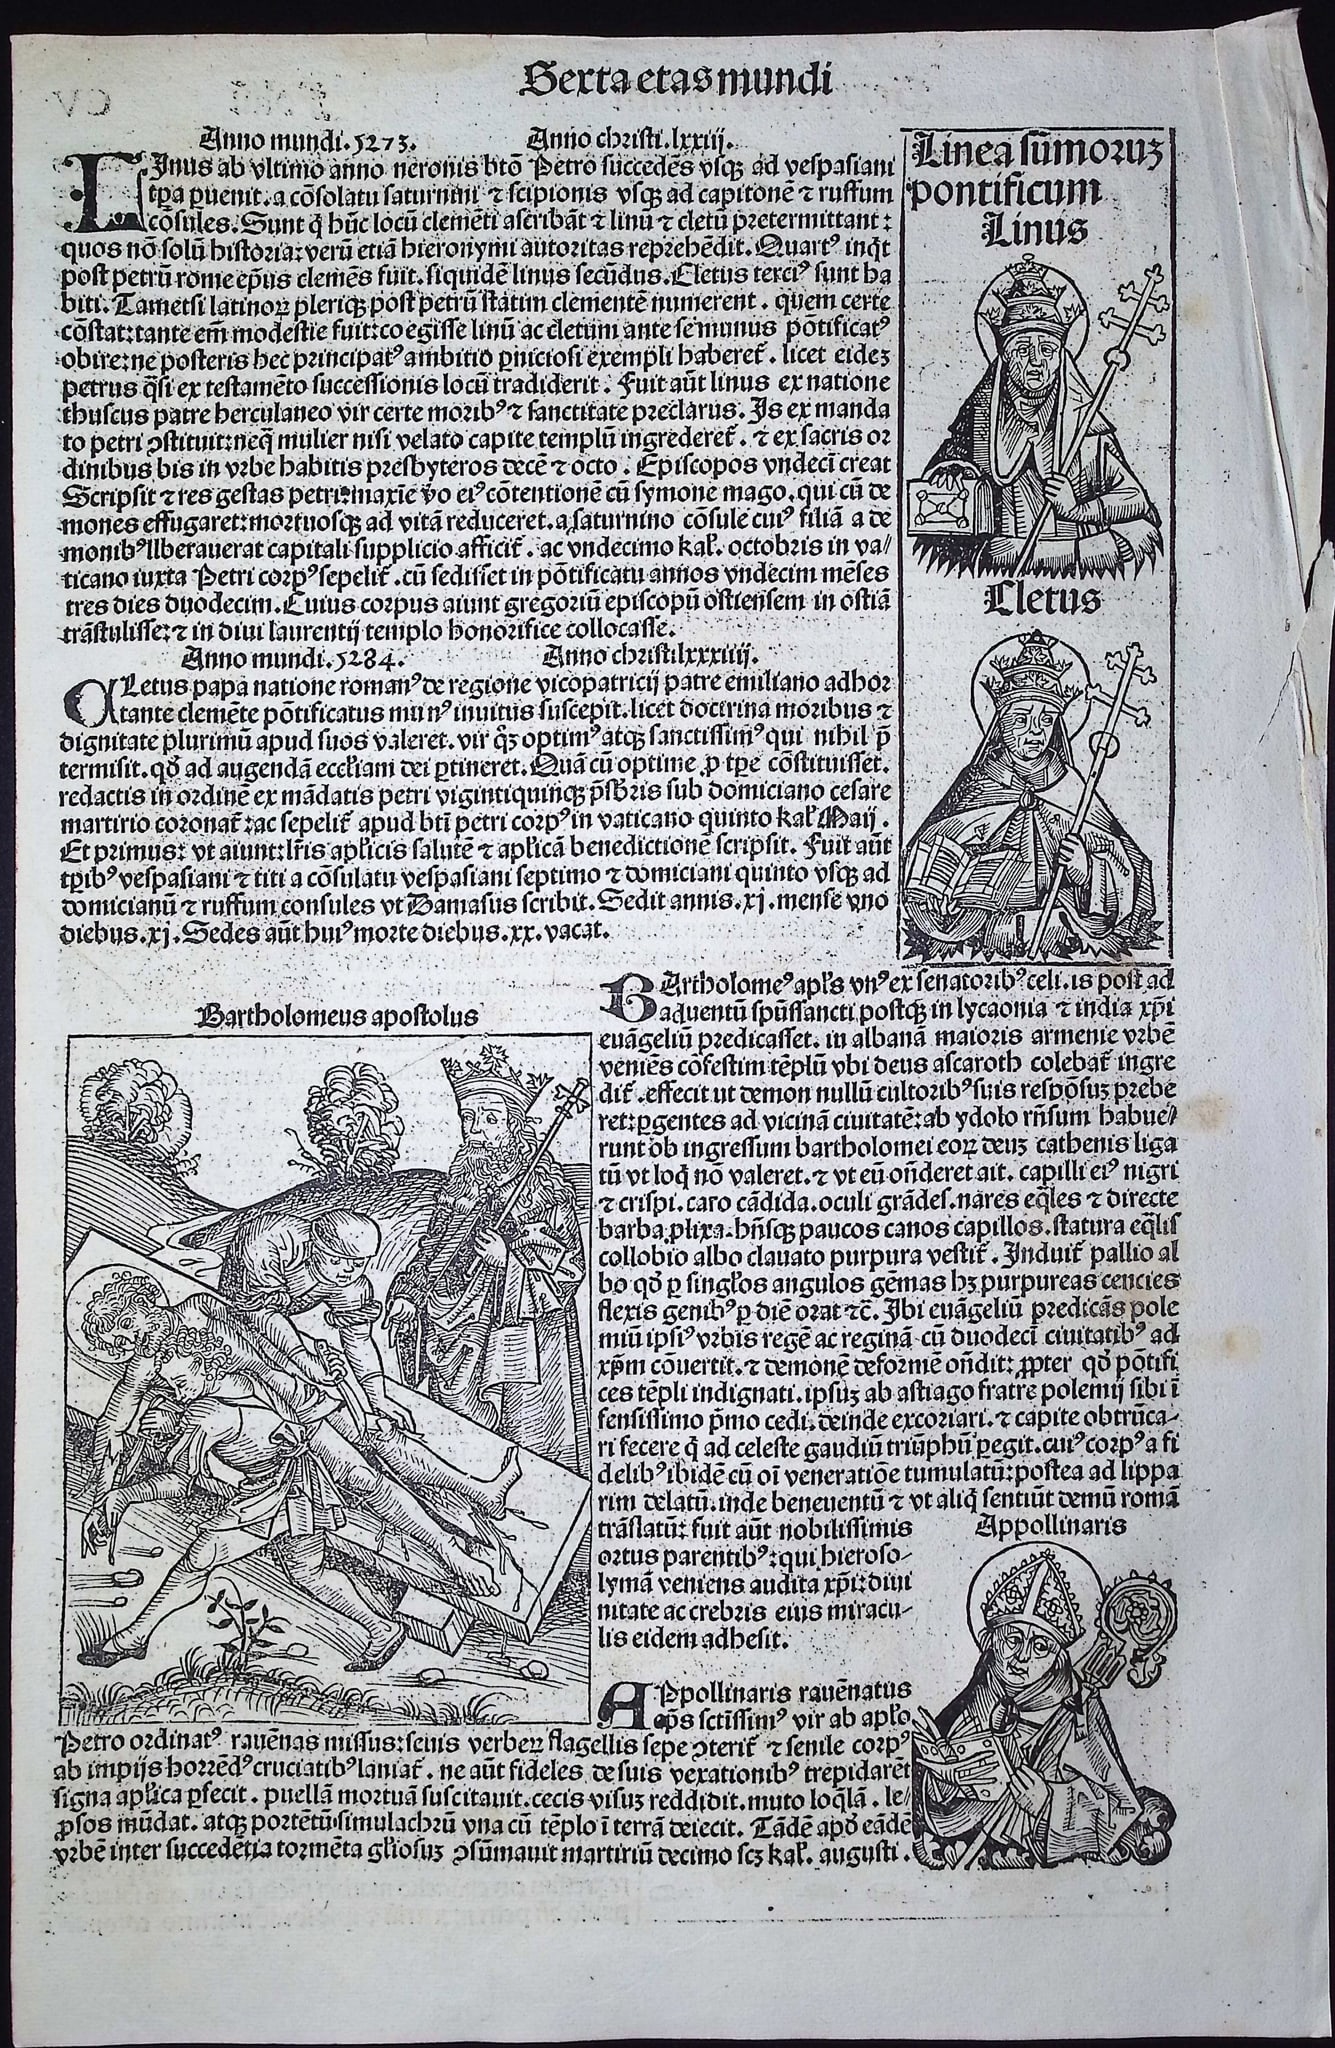 Sexta etas mundi
Anno mundi .5273. Anno christi .lxxiij.
LInus ab vltimo anno neronis btõ Petro succedẽs vsqꝫ ad vespasiani
tꝑa ꝑuenit. a cõsolatu saturnini ⁊ scipionis vsqꝫ ad capitonẽ ⁊ ruffum
cõsules. Sunt q̃ hũc locũ clemẽti ascribãt ⁊ linũ ⁊ cletũ pretermittant:
quos nõ solũ historia: verũ etiã hieronymi autoritas reprehẽdit. Quartꝰ inqͥt
post petrũ rome ep̃us clemẽs fuit. siquidẽ linus secũdus. Cletus terciꝰ sunt ha
biti. Tametsi latinoꝝ pleriqꝫ post petrũ statim clementẽ numerent. quem certe
cõstat: tante em̃ modestie fuit: coegisse linũ ac cletum ante se munus põtificatꝰ
obire: ne posteris hec principatꝰ ambitio ꝑniciosi exempli haberet̃. licet eidez
petrus q̃si ex testamẽto successionis locũ tradiderit. Fuit aũt linus ex natione
thuscus patre herculaneo vir certe moribꝰ ⁊ sanctitate preclarus. Is ex manda
to petri ꝯstituit: neqꝫ mulier nisi velato capite templũ ingrederet̃. ⁊ ex sacris or
dinibus bis in vrbe habitis presbyteros decẽ ⁊ octo. Episcopos vndeci creat
Scripsit ⁊ res gestas petri: maxĩe ṽo eiꝰ cõtentionẽ cũ symone mago. qui cũ de
mones effugaret: mortuosqꝫ ad vitã reduceret. a saturnino cõsule cuiꝰ filiã a de
monibꝰ liberauerat capitali supplicio afficit̃. ac vndecimo kal̃. octobris in va/
ticano iuxta Petri corpꝰ sepelit̃. cũ sedisset in põtificatu annos vndecim mẽses
tres dies duodecim. Cuius corpus aiunt gregoriũ episcopũ ostiensem in ostiã
trãstulisse: ⁊ in diui laurentij templo honorifice collocasse.
Anno mundi .5284. Anno christi lxxxiiij.
CLetus papa natione romanꝰ de regione vicopatricij patre emiliano adhor
tante clemẽte põtificatus munꝰ inuitus suscepit. licet doctrina moribus ⁊
dignitate plurimũ apud suos valeret. vir q̃ꝫ optimꝰ atqꝫ sanctissimꝰ qui nihil p̃
termisit. qd̃ ad augendã eccl̃iam dei ꝑtineret. Quã cũ optime ꝓ tꝑe cõstituisset.
redactis in ordinẽ ex mãdatis petri vigintiquinqꝫ p̃sbr̃is sub domiciano cesare
martirio coronat̃: ac sepelit̃ apud bt̃i petri corpꝰ in vaticano quinto kal̃ Maij.
Et primus: vt aiunt: lr̃is apl̃icis salutẽ ⁊ apl̃icã benedictionẽ scripsit. Fuit aũt
tꝑibꝰ vespasiani ⁊ titi a cõsulatu vespasiani septimo ⁊ domiciani quinto vsqꝫ ad
domicianũ ⁊ ruffum consules vt Damasus scribit. Sedit annis .xj. mense vno
diebus .xj. Sedes aũt huiꝰ morte diebus .xx. vacat.
Linea sũmoruꝫ
pontificum
Linus
Cletus
Bartholomeus apostolus
BArtholomeꝰ apl̃s vnꝰ ex senatoribꝰ celi. is post ad
aduentũ sp̃ussancti postqꝫ in lycaonia ⁊ india xp̃i
euãgeliũ predicasset. in albanã maioris armenie vrbẽ
veniẽs cõfestim tẽplũ vbi deus ascaroth colebat̃ ingre
dit̃. effecit ut demon nullũ cultoribꝰ suis respõsuꝫ prebe
ret: ꝑgentes ad vicinã ciuitatẽ: ab ydolo rñsum habue/
runt ob ingressum bartholomei eoꝝ deuꝫ cathenis liga
tũ vt loqͥ nõ valeret. ⁊ vt eũ oñderet ait. capilli eiꝰ nigri
⁊ crispi. caro cãdida. oculi grãdes. nares eq̃les ⁊ directe
barba ꝓlixa. hñsqꝫ paucos canos capillos. statura eq̃lis
collobio albo clauato purpura vestit̃. Induit̃ pallio al
bo qd̃ ꝑ singl̃os angulos gẽmas hꝫ purpureas cencies
flexis genibꝰ ꝑ diẽ orat ⁊c̃. Ibi euãgeliũ predicãs pole
miũ ipsiꝰ vrbis regẽ ac reginã cũ duodeci ciuitatibꝰ ad
xp̃m cõuertit. ⁊ demonẽ deformẽ oñdit: ꝓpter qd̃ põtifi
ces tẽpli indignati. ipsuꝫ ab astiago fratre polemij sibi ĩ
fensissimo p̃mo cedi. deinde excoriari. ⁊ capite obtrũca-
ri fecere q̃ ad celeste gaudiũ triũphũ ꝑegit. cuiꝰ corpꝰ a fi
delibꝰ ibidẽ cũ oĩ veneratiõe tumulatũ: postea ad lippa
rim delatũ. inde beneuentũ ⁊ vt aliq̃ sentiũt demũ romã
trãslatũ: fuit aũt nobilissimis
ortus parentibꝰ: qui hieroso-
lymã veniens audita xp̃i: diui
nitate ac crebris eius miracu-
lis eidem adhesit.
Appollinaris
APpollinaris rauẽnatus
ep̃s sctissimꝰ vir ab apl̃o
Petro ordinatꝰ. rauẽnas missus: seuis verbeꝝ flagellis sepe ꝯterit̃ ⁊ senile corpꝰ
ab impijs horrẽdꝰ cruciatibꝰ laniat̃. ne aũt fideles de suis vexationibꝰ trepidarẽt
signa apl̃ica ꝑfecit. puellã mortuã suscitauit. cecis visuꝫ reddidit. muto loq̃lã. le-
ꝓsos mũdat. atqꝫ portẽtũ simulachrũ vna cũ tẽplo ĩ terrã deiecit. Tãdẽ apd̃ eãdẽ
vrbẽ inter succedẽtia tormẽta gl̃iosuꝫ ꝯsũmauit martiriũ decimo scꝫ kal̃. augusti.